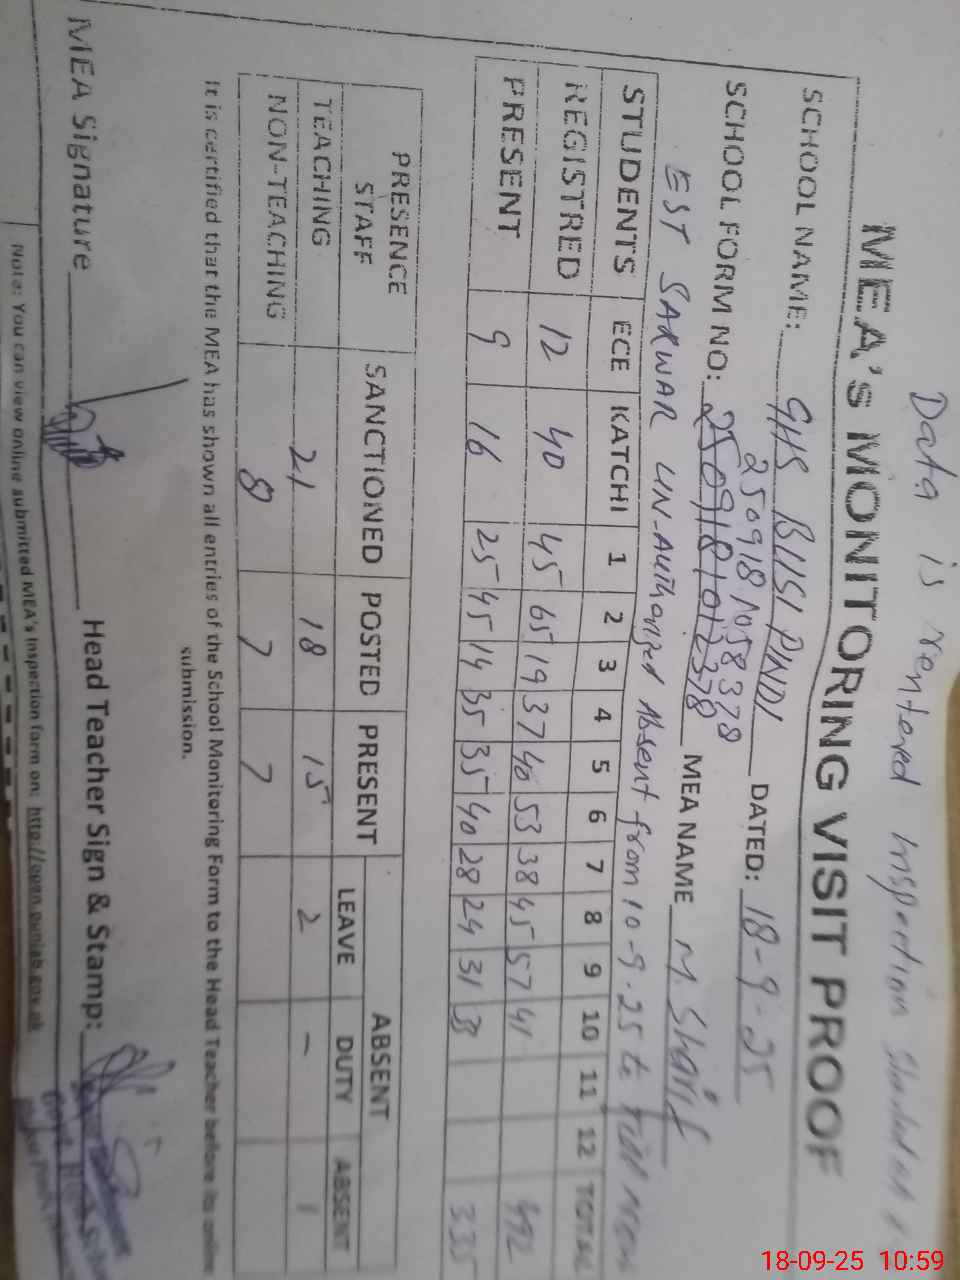 Data is rentered inspection
MEA's MONITORING VISIT PROOF
SCHOOL NAME: GHS BUSI PINDI DATED: 18-9-25
250918N058378
SCHOOL FORM NO: 2509181012378 MEA NAME M. Sharif
EST SARWAR UN-Authorized Absent from 10-9-25 to
STUDENTS ECE KATCHI 1 2 3 4 5 6 7 8 9 10 11 12 TOTAL
REGISTRED 12 40 45 65 19 37 40 53 38 45 57 41 492
PRESENT 9 16 25 45 14 35 35 40 28 24 31 33 335
PRESENCE STAFF SANCTIONED POSTED PRESENT ABSENT
LEAVE DUTY ABSENT
TEACHING 21 18 15 2 - 1
NON-TEACHING 8 7 7
It is certified that the MEA has shown all entries of the School Monitoring Form to the Head Teacher before its online
submission.
MEA Signature Head Teacher Sign & Stamp:
Note: You can view online submitted MEA's Inspection form on: http://open.punjab.gov.pk
18-09-25 10:59